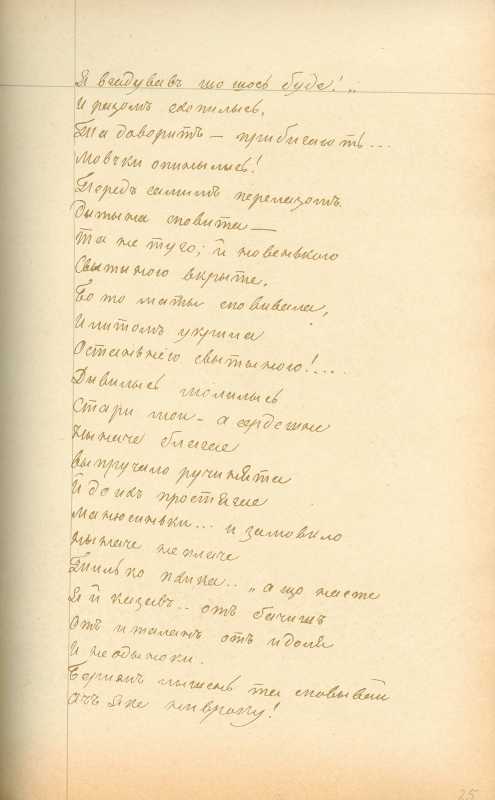 Я вгадувавъ шо шось буде! „
И разомъ схопилысь,
Та до воритъ — прибигають...
Мовчки опинылысь!
Передъ самымъ перелазомъ
Дытына сповита —
Та не туго; й новенькою
Свытыною вкрыта.
Бо то маты сповивала,
И литомъ укрила
Останнёю свытыною!....
Дивилысь молилысь
Стари мои - а сердешне
Ныначе благає
выпручало рученята
Й до ихъ простягає
Манюсиньки... и замовкло
ныначе не плаче
Тилько пхика.. „ а що насте
Я й казавъ.. отъ бачишъ
Отъ и таланъ отъ и доля
И не одыноки.
Беры жъ лышень та сповывай
Ачъ яке нивроку!
25